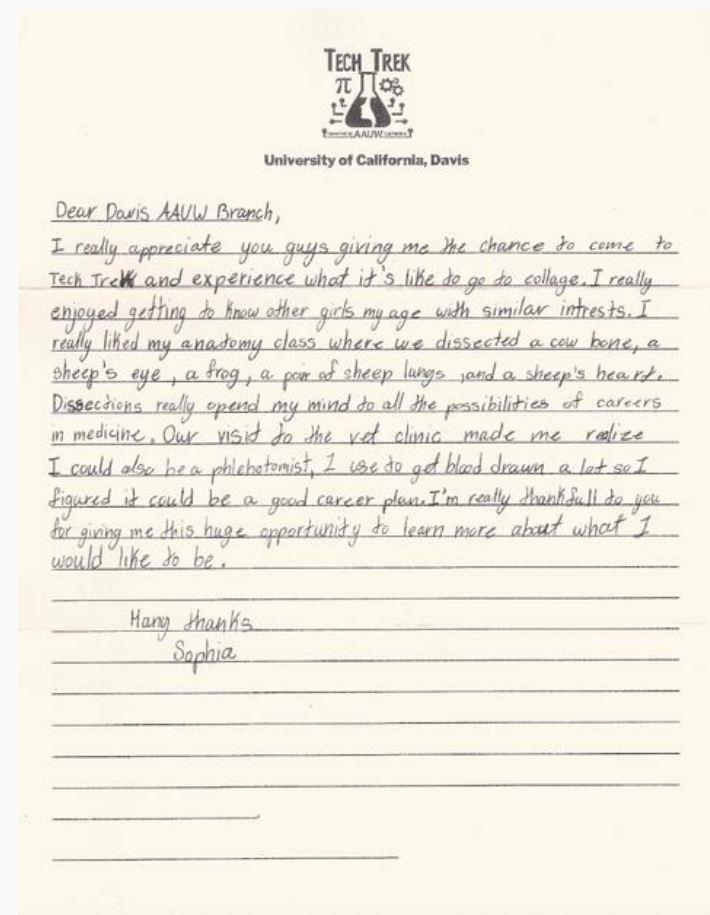 TECH TREK
π
AAUW
University of California, Davis
Dear Davis AAUW Branch,
I really appreciate you guys giving me the chance to come to
Tech Trek and experience what it's like to go to collage. I really
enjoyed getting to know other girls my age with similar intrests. I
really liked my anatomy class where we dissected a cow bone, a
sheep's eye, a frog, a pair of sheep lungs, and a sheep's heart.
Dissections really opend my mind to all the possibilities of careers
in medicine. Our visit to the vet clinic made me realize
I could also be a phlebotomist, I use to get blood drawn a lot so I
figured it could be a good career plan. I'm really thankfull to you
for giving me this huge opportunity to learn more about what I
would like to be.
Many thanks
Sophia